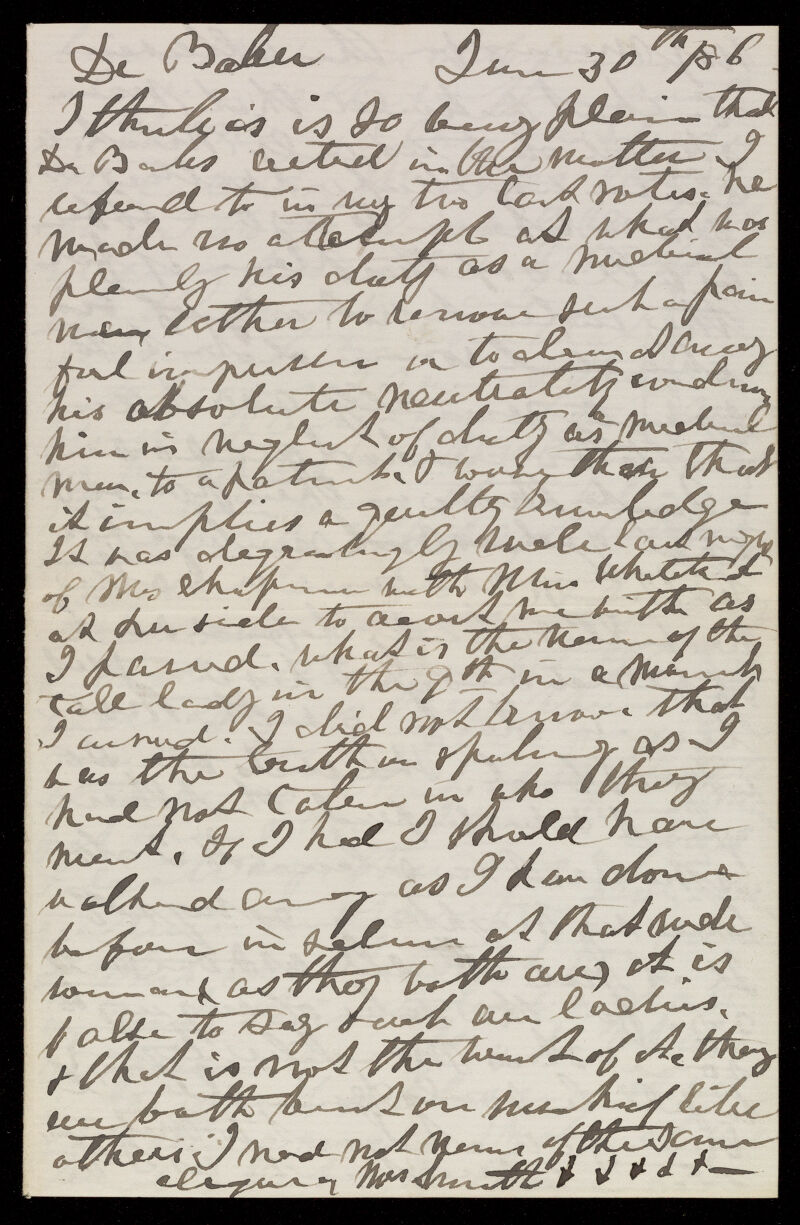 Dr Baker June 30th /86
I think is is so very plain that
Dr Baker acted in the matter I
referred to in my two last notes. he
made no attempt at what was
plainly his duty as a medical
man either to remove such a pain
ful impression or to clear it away
his absolute neutrality condemns
him in neglect of duty as medical
man, to a patient. & worse than that
it implies a guilty knowledge
It was degradingly rude last night
of Mrs Chapman with Miss
at her side to accost me with as
I passed. what is the name of the
tall lady in the 9th in a
I answd. I did not know that
was the truth in speaking as I
had not taken in who they
meant, If I had I should have
walked away as I have done
before in silence at that rude
woman (as they both are) it is
false to say such are ladies.
& that is not the worst of it. they
are both bent on mischief like
others I need not name of the same
Mrs Smith & & & & & —